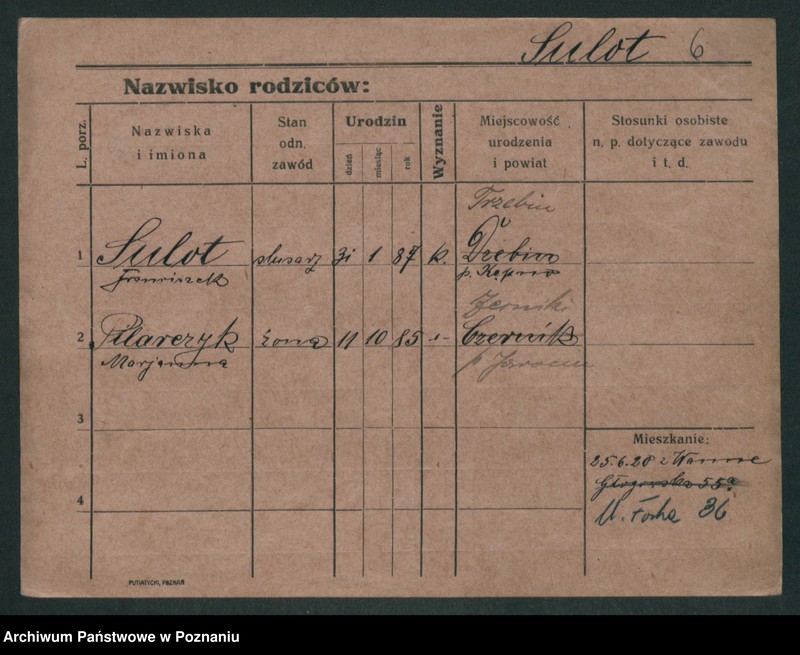 Sulot 6
Nazwisko rodziców:
L. porz.
Nazwiska
i imiona
Stan
odn.
zawód
Urodzin
dzień
miesiąc
rok
Wyznanie
Miejscowość
urodzenia
i powiat
Stosunki osobiste
n. p. dotyczące zawodu
i t. d.
Trzebin
1 Sulot ślusarz 31 1 87 k.
Franciszek p. Kępno
Żerniki
2 Pilarczyk żona 11 10 85 Czernik
Marjanna p Jarocin
3
Mieszkanie:
25.6.20 z Wanne
4 Głogowska 55a
M. Focha 36
PUTIATYCKI, POZNAŃ
Archiwum Państwowe w Poznaniu